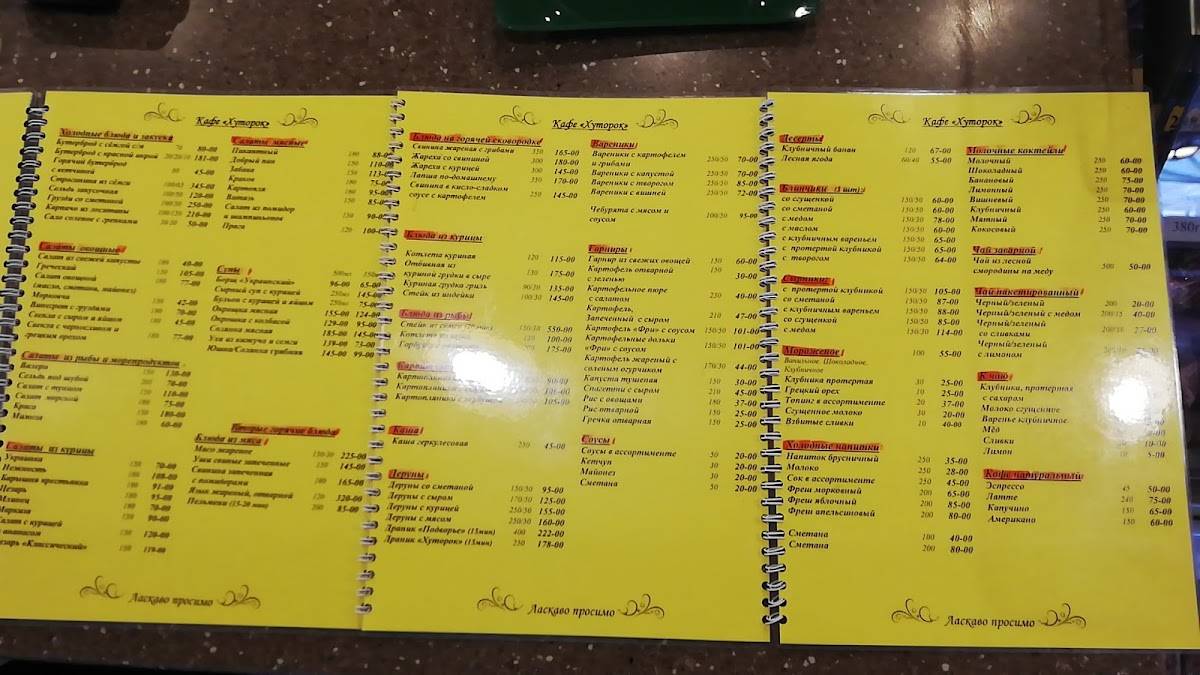 Кафе «Хуторок»
Холодные блюда и закуски
Бутерброд с сёмгой с/м 70 80-00
Бутерброд с красной икрой 20/20/10 181-00
Горячий бутерброд
с ветчиной 80 45-00
Строганина из сёмги 345-00
Сельдь закусочная 120-00
Грузди со сметаной 250-00
210-00
Сало соленое с гренками 50-00
Салаты овощные
Салат из свежей капусты 100 40-00
Греческий 150 105-00
Салат овощной 180 77-00
(масло, сметана, майонез)
Морковча 42-00
Винегрет с груздями 70-00
Свекла с сыром и яйцом 45-00
Свекла с черносливом и
грецким орехом 77-00
Салаты из рыбы и морепродуктов
130-00
Сельдь под шубой 70-00
Салат с тунцом 110-00
Салат морской 75-00
180-00
Мимоза 60-00
Салаты из курицы
Украинка 70-00
Нежность 108-00
Барышня крестьянка 91-00
Цезарь 95-00
70-00
90-00
Салат с курицей
и ананасом 120-00
Цезарь «Классический» 119-00
Салаты мясные
Пикантный 180
Добрый пан 150
Забава
Краков
Картопля
Витязь
Салат из помидор
и шампиньонов
Прага
Супы
Борщ «Украинский» 96-00
Сырный суп с курицей
Бульон с курицей и яйцом
Окрошка мясная 155-00 124-00
Окрошка с колбасой 129-00 95-00
Солянка мясная 185-00 145-00
139-00 73-00
Юшка/Солянка грибная 145-00 99-00
Вторые горячие блюда
Блюда из мяса
Мясо жареное 150/30 225-00
Уши свиные запеченные 150 145-00
Свинина запеченная
с помидорами 160 165-00
Язык жареный, отварной 120 320-00
Пельмени (15-20 мин) 200 85-00
Ласкаво просимо
Кафе «Хуторок»
Блюда на горячей сковородке
Свинина жареная с грибами 350 165-00
Жареха со свининой 300 180-00
Жареха с курицей 300 145-00
Лапша по-домашнему 350 170-00
Свинина в кисло-сладком
соусе с картофелем 250 145-00
Блюда из курицы
Котлета куриная 120 115-00
Отбивная из
куриной грудки в сыре 130 175-00
Куриная грудка гриль 90/20 135-00
Стейк из индейки 100/30 145-00
Блюда из рыбы
Стейк из сёмги 550-00
100-00
175-00
90-00
105-00
Каша
Каша геркулесовая 250 45-00
Деруны
Деруны со сметаной 150/50 95-00
Деруны с сыром 170/50 125-00
Деруны с курицей 250/50 155-00
Деруны с мясом 250/50 160-00
Драник «Подворье» (15мин) 400 222-00
Драник «Хуторок» (15мин) 250 178-00
Вареники
Вареники с картофелем
и грибами 250/50 70-00
Вареники с капустой 250/50 70-00
Вареники с творогом 250/50 85-00
Вареники с вишней 250/50 72-00
Чебурята с мясом и
соусом 100/50 95-00
Гарниры
Гарнир из свежих овощей 150 60-00
Картофель отварной 150
с зеленью 30-00
Картофельное пюре
с салатом 250 40-00
Картофель,
Запеченный с сыром 210 47-00
Картофель «Фри» с соусом 150/50 101-00
Картофельные дольки
«Фри» с соусом 150/50 101-00
Картофель жареный с
соленым огурчиком 170/30 44-00
Капуста тушеная 150 30-00
Спагетти с сыром 210 45-00
Рис с овощами 180 37-00
Рис отварной 150 25-00
Гречка отварная 150 25-00
Соусы
Соусы в ассортименте 50 20-00
Кетчуп 50 20-00
Майонез 50 20-00
Сметана 50 20-00
Ласкаво просимо
Кафе «Хуторок»
Десерты
Клубничный банан 120 67-00
Лесная ягода 60/40 55-00
Блинчики (3 шт)
со сгущенкой 150/50 60-00
со сметаной 150/50 60-00
с медом 150/30 78-00
с маслом 150/50 60-00
с клубничным вареньем 150/50 65-00
с протертой клубникой 150/50 65-00
с творогом 150/50 64-00
Сырники
с протертой клубникой 150/50 105-00
со сметаной 150/50 87-00
с клубничным вареньем 150/50 88-00
со сгущенкой 150/50 85-00
с медом 150/30 114-00
Мороженое 100 55-00
Ванильное, Шоколадное,
Клубничное
Клубника протертая 30 25-00
Грецкий орех 10 25-00
Топинг в ассортименте 20 37-00
Сгущенное молоко 30 20-00
Взбитые сливки 10 40-00
Холодные напитки
Напиток брусничный 250 35-00
Молоко 250 28-00
Сок в ассортименте 250 45-00
Фреш морковный 200 65-00
Фреш яблочный 200 85-00
Фреш апельсиновый 200 80-00
Сметана 100 40-00
Сметана 200 80-00
Молочные коктейли
Молочный 250 60-00
Шоколадный 250 60-00
Банановый 250 75-00
Лимонный 250 70-00
Вишневый 250 70-00
Клубничный 250 60-00
Мятный 250 70-00
Кокосовый 250 70-00
Чай заварной
Чай из лесной
смородины на меду 500 50-00
Чай пакетированный
Черный/зеленый 200 20-00
Черный/зеленый с медом 200/15 40-00
Черный/зеленый
со сливками 27-00
Черный/зеленый
с лимоном
К чаю
Клубника, протертая
с сахаром
Молоко сгущенное
Варенье клубничное
Мёд
Сливки 10-00
Лимон 5-00
Кофе натуральный
Эспрессо 45 50-00
Латте 240 75-00
Капучино 150 65-00
Американо 150 60-00
Ласкаво просимо